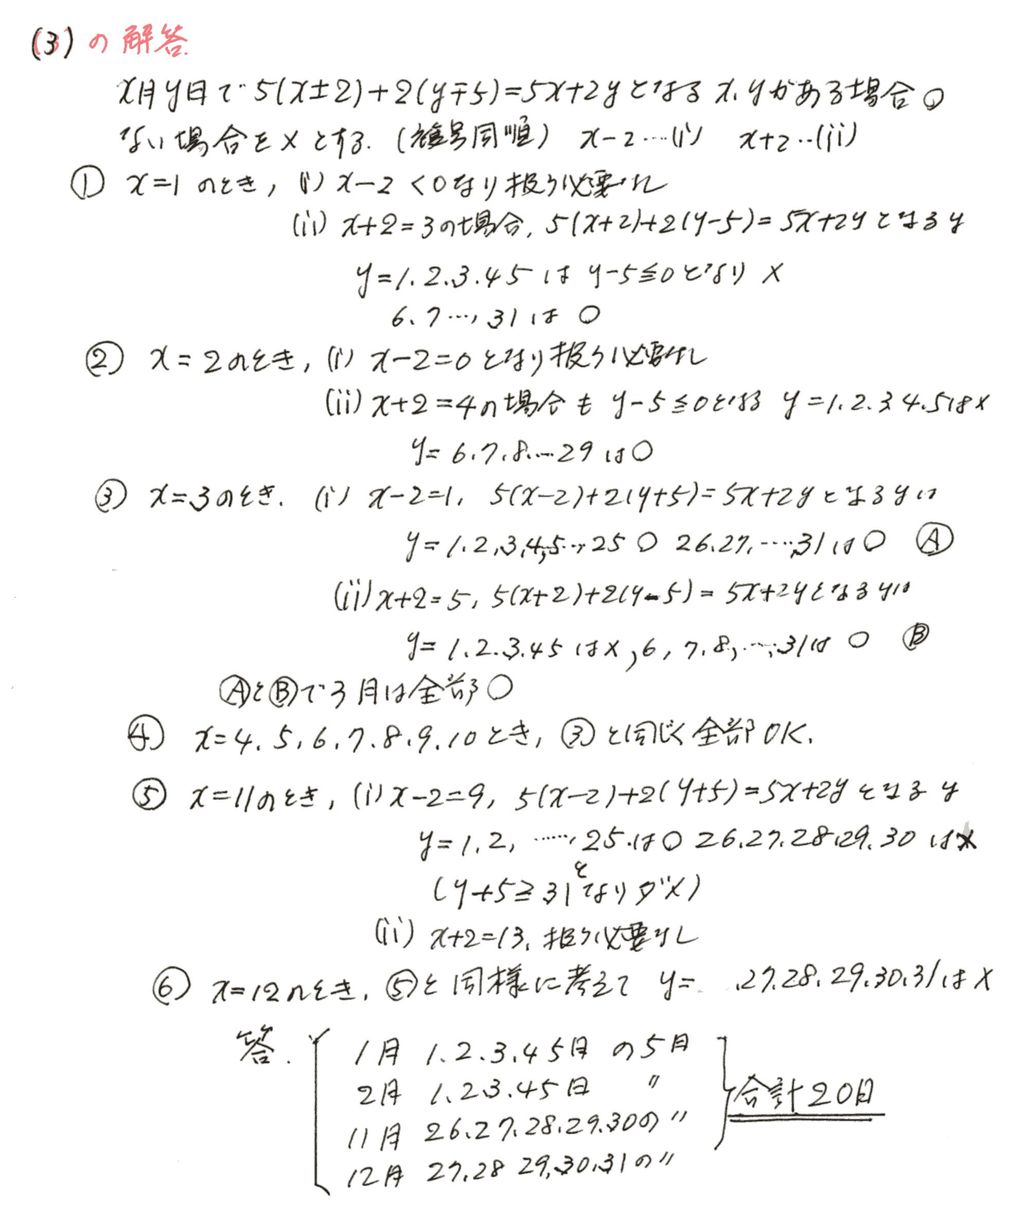 (3)の解答.
x月y日で5(x±2)+2(y∓5)=5x+2yとなるx,yがある場合○
ない場合を×とする.(複号同順) x-2…(i) x+2..(ii)
① x=1のとき, (i) x-2<0なり扱う必要なし
(ii) x+2=3の場合, 5(x+2)+2(y-5)=5x+2yとなるy
y=1.2.3.45は y-5≦0となり ×
6.7…, 31は ○
② x=2のとき, (i) x-2=0となり扱う必要なし
(ii) x+2=4の場合も y-5≦0となる y=1.2.3.4.5は×
y=6.7.8.…29は○
③ x=3のとき. (i) x-2=1, 5(x-2)+2(y+5)=5x+2yとなるyは
y=1.2,3,4,5…,25 ○ 26.27,…,31は○ Ⓐ
(ii) x+2=5, 5(x+2)+2(y-5)=5x+2yとなるyは
y=1.2.3.45は×, 6, 7.8,…,31は ○ Ⓑ
ⒶとⒷで3月は全部○
④ x=4.5.6.7.8.9.10とき, ③と同じく全部OK.
⑤ x=11のとき, (i) x-2=9, 5(x-2)+2(y+5)=5x+2yとなるy
y=1.2, ……, 25.は○ 26.27.28.29.30は×
(y+5≧31となりダメ)
(ii) x+2=13, 扱う必要なし
⑥ x=12のとき, ⑤と同様に考えて y= .27.28.29.30.31は×
答.
1月 1.2.3.45日 の5日
2月 1.2.3.45日 〃
11月 26.27.28.29.30の〃
12月 27.28 29.30.31の〃
合計20日